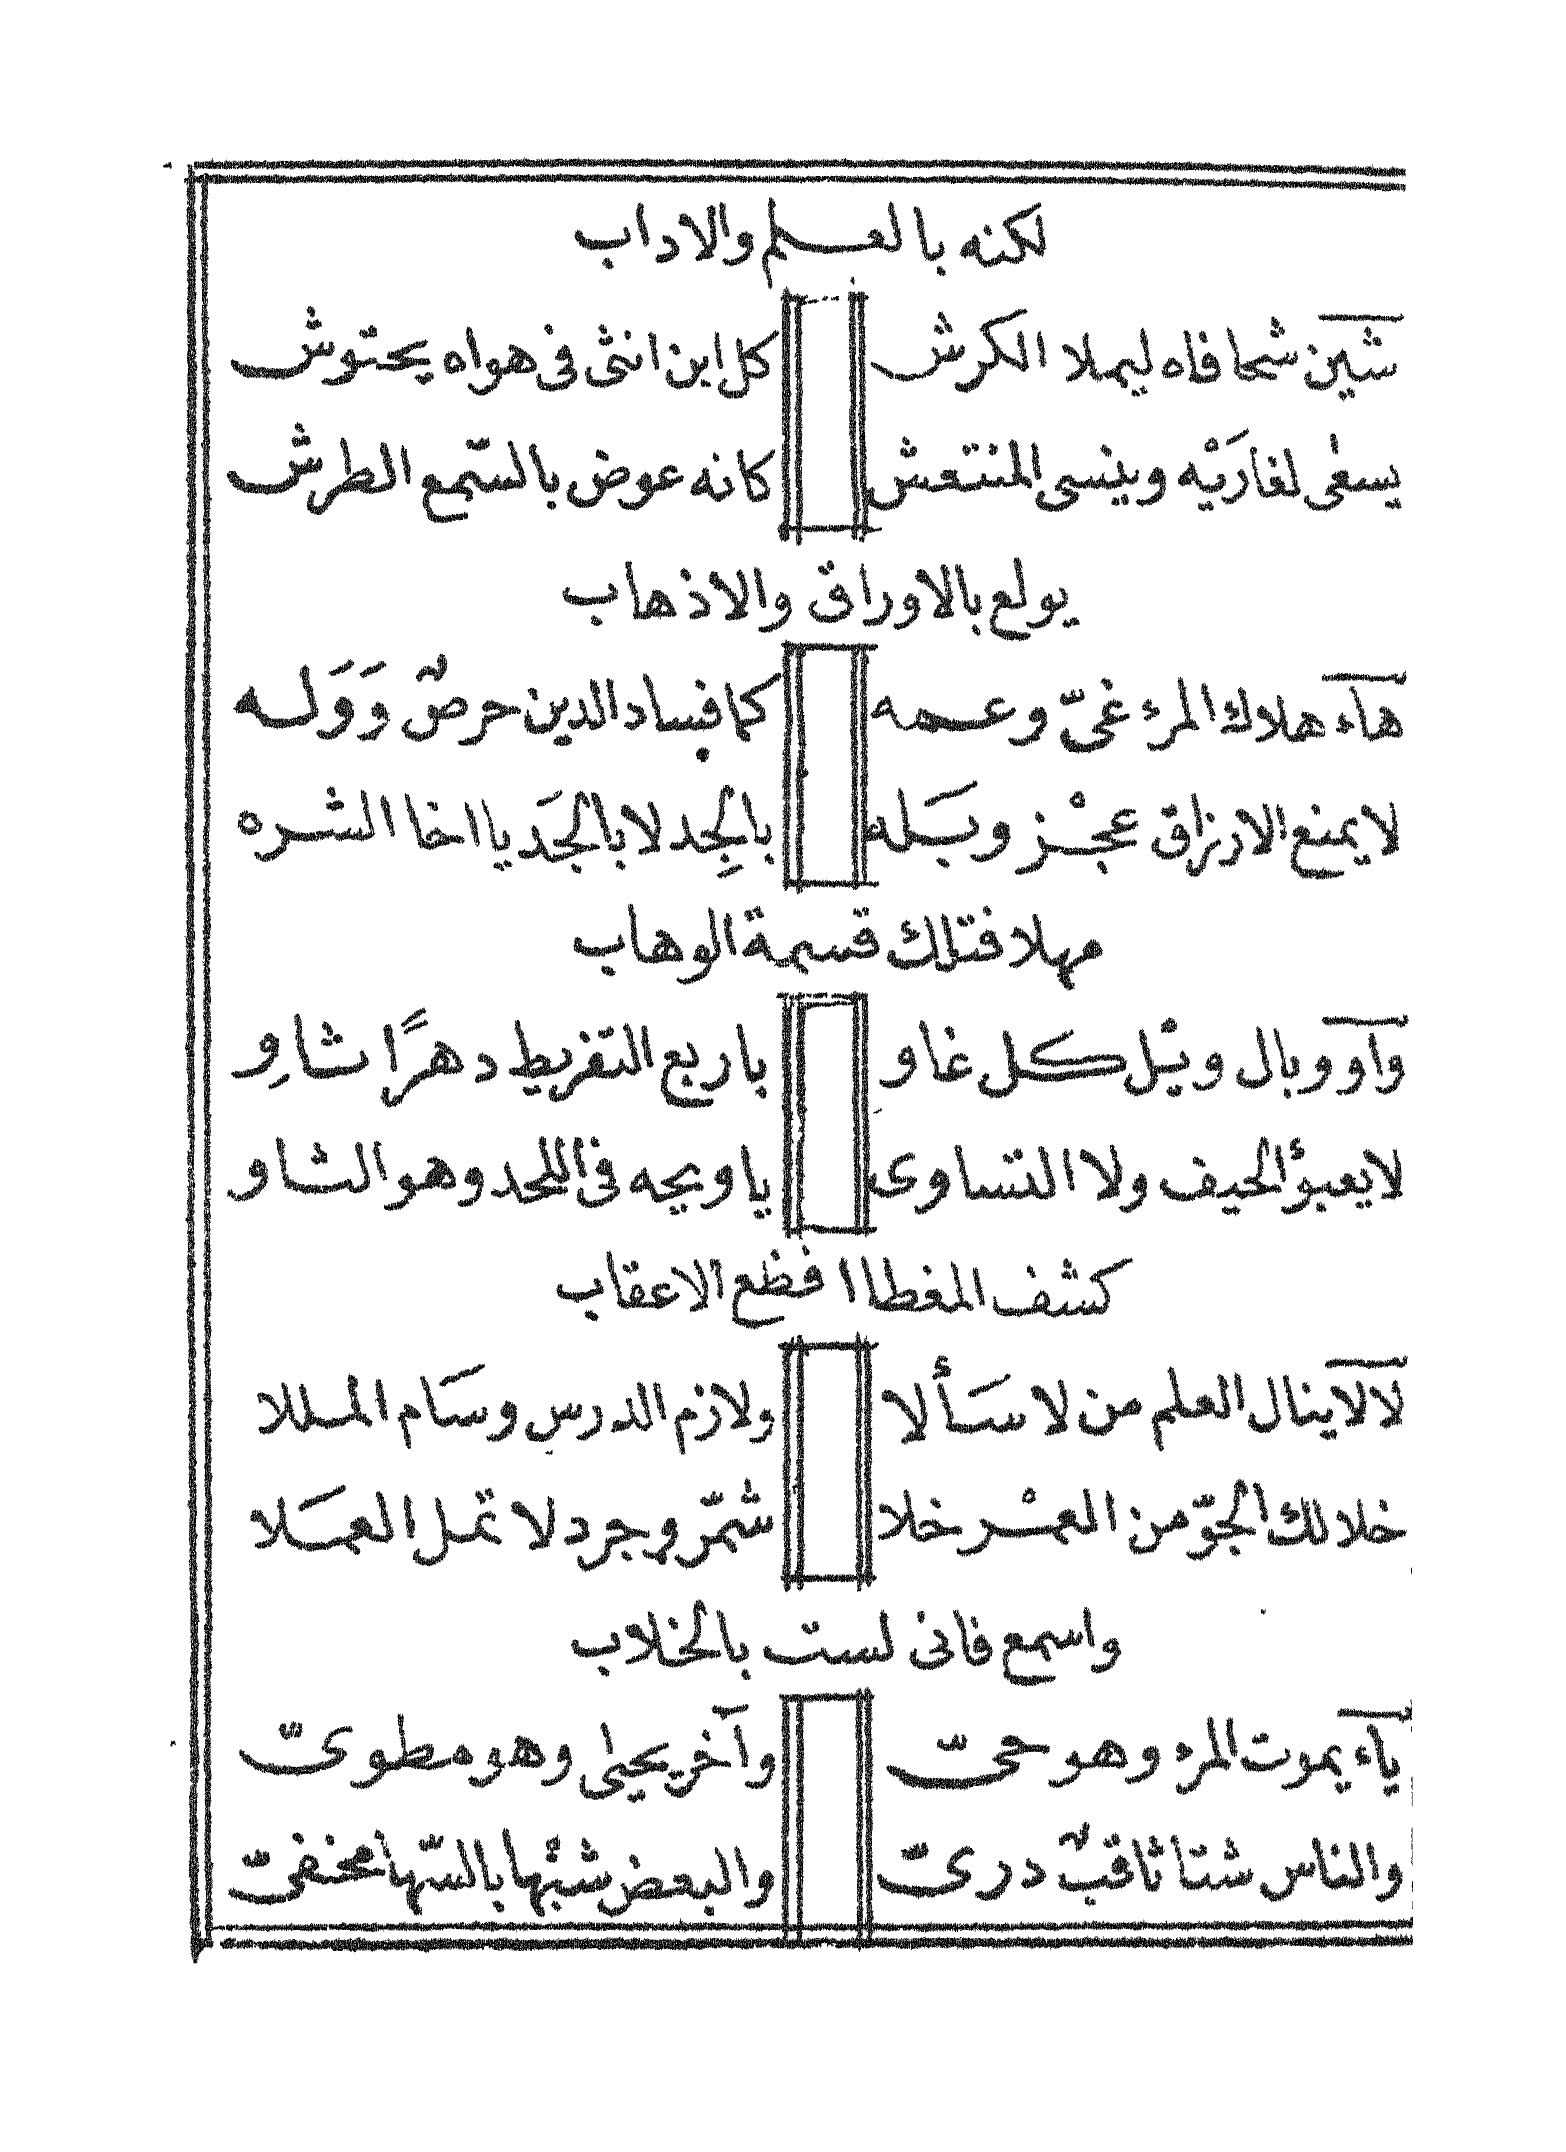 لكنه بالعلم والاداب
شين شحا فاه ليملا الكرش كل ابن انثى فى هواه يحتوش
يسعى لغاريْه وينسى المنتعش كانه عوض بالسّمع الطرش
يولع بالاوراق والاذهاب
هاء هلاك المرء غىّ وعمه كما فساد الدين حرصٌ وَوَله
لا يمنع الارزاق عجْز وبَله بالجِد لا بالجَد يا اخا الشره
مهلا فتلك قسمة الوهاب
واو وبال ويْل كل غاو باربع التفريط دهرًا ثاوِ
لا يعبؤ الحيف ولا التساوى يا ويحه فى اللحد وهو الثاو
كشف الغطا افظع الاعقاب
لا لا ينال العلم من لا سَألا ولازم الدرس وسَام المللا
خلا لك الجوّ من العمْر خلا شمّر وجرد لا تمل العمَلا
واسمع فانى لست بالخلاب
ياء يموت المرء وهو حىّ وآخر يحيى وهو مطوىّ
والناس شتا ثاقبٌ درىّ والبعض شبْها بالسّها مخفىّ